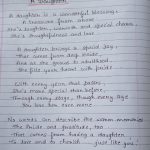 A Daughter
A daughter is a wonderful blessing.
A treasure from above
She's laughter, warmth and special charm,
She's thoughtfulness and love
A daughter brings a special joy,
That comes from deep inside
And as she grows to adulthood,
She fills your heart with pride
With every year that passes,
She's more special than before,
Through every stage, through every age
You love her even more.
No words can describe the warm memories
The pride and gratitude, too
That comes from having a daughter
To love and to cherish just like you.